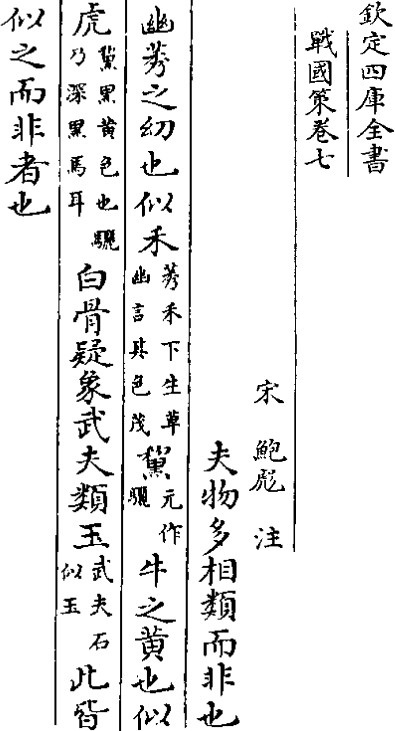 欽定四庫全書
戰國策卷七
宋 鮑彪 注
夫物多相類而非也
幽莠之幼也似禾莠禾下生草幽言其色茂黧元作驪牛之黄也似
虎黧黑黄色也驪乃深黑馬耳白骨疑象武夫類玉武夫石似玉此皆
似之而非者也